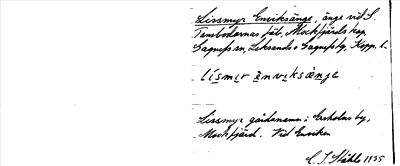 Lissmyr Enviksänge, änge vid S.
Tansbodarnas fäb., Mockfjärds kap,
Gagnefs sn, Leksands o Gagnefs tg, Kopp. l.
lismır änvıksänje
Lissmyr gårdsnamn i Erkolns by,
Mockfjärd. Vid Enviken
C. I. Ståhle 1935